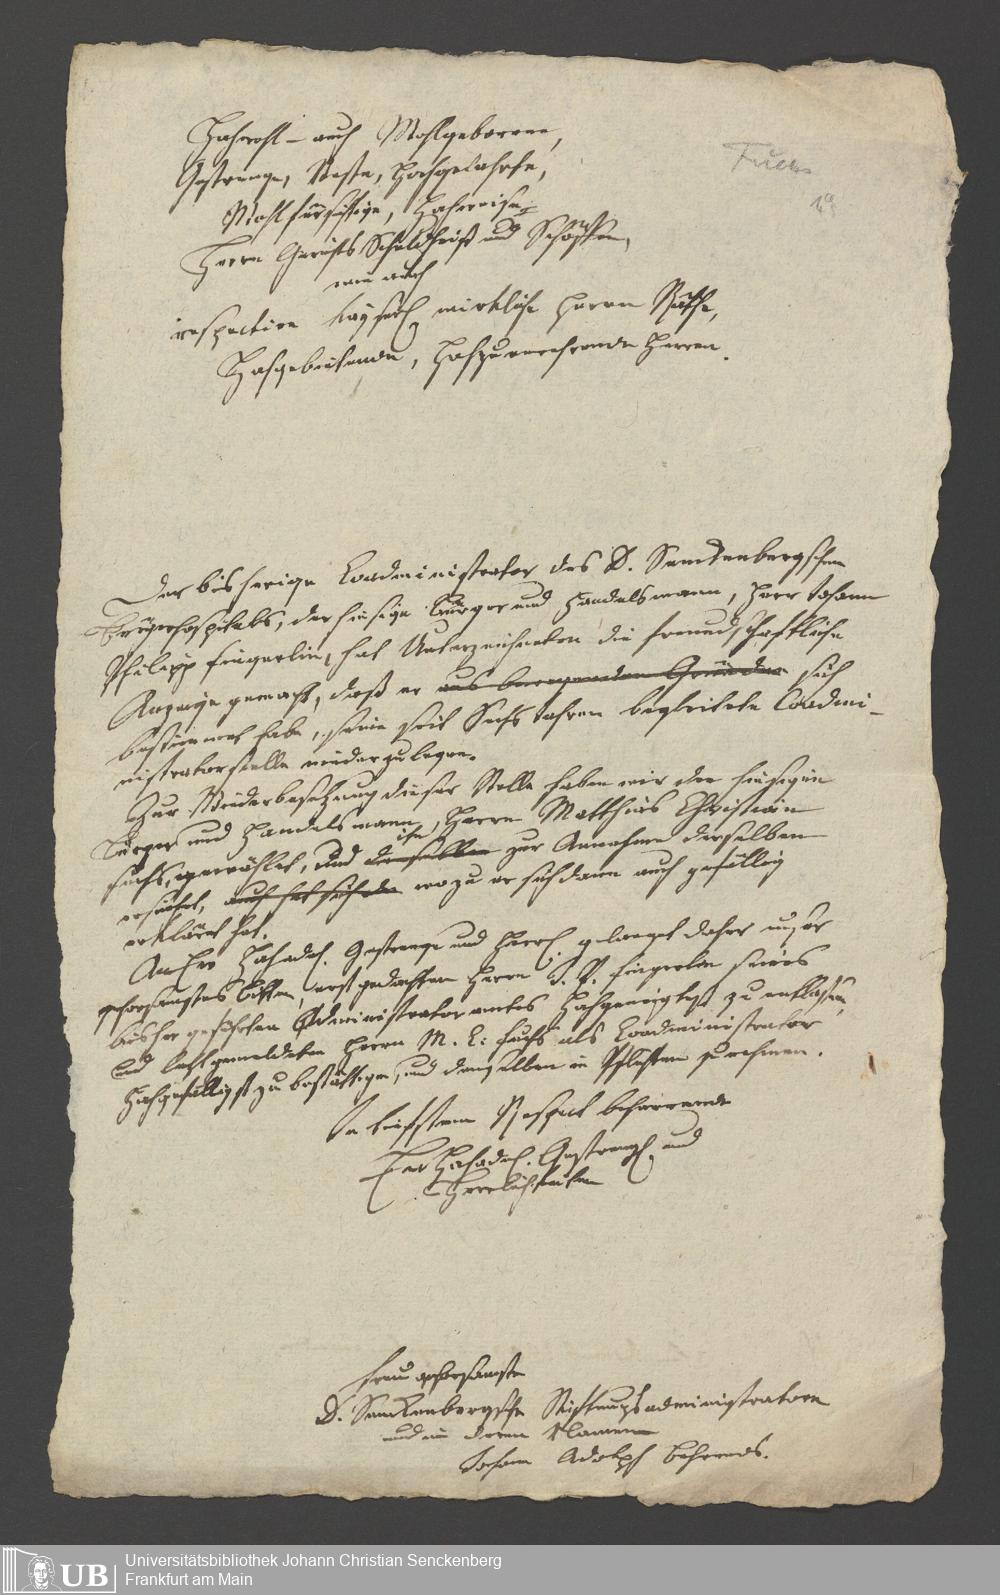 Hochwohl- auch Wohlgeborene,
Gestrenge, Veste, Hochgelahrte,
Wohlfürsichtige, Hochweise
Herrn Gerichts Schultheiß und Schöffen,
wie auch
respective Kayserl. wirkliche Herrn Räthe,
Hochgebietende, Hochzuverehrende Herren.
Fuchs
Der bisherige Coadministrator des D. Senckenbergschen
Bürgerhospitals, der hiesige Bürger und Handelsmann, Herr Johann
Philipp Fingerlin, hat Unterzeichneten die freundschaftliche
Anzeige gemacht, daß er aus bewegenden Gründen sich
bestimmet habe, seine seit Sechs Jahren begleitete Coadmi-
nistratorstelle niederzulegen.
Zur Wiederbesetzung dieser Stelle haben wir den hiesigen
Bürger und Handelsmann, Herrn Matthias Christian
ihn
Fuchs, gewählet, und denselben zur Annahme derselben
ersuchet, auch hat sich wozu er sich dann auch gefällig
erkläret hat.
An Ew Hochadel. Gestrenge und Herrl. gelanget daher unser
gehorsamstes Bitten, erst gedachten Herrn J. P. Fingerlin seines
bisher geführten Administratoramtes Hochgeneigtest zu entlassen,
und letztgemeldeten Herrn M. C. Fuchs als Coadministrator
Hochgefälligst zu bestättigen, und denselben in Pflichten zu nehmen.
In tiefstem Respect beharrende
Ew Hochadel. Gestreng. und
Herrlichkeiten
gehorsamste
D. Senckenbergsche Stiftungsadministratoren
und in deren Namen
Johann Adolph Behrends.
UB
Universitätsbibliothek Johann Christian Senckenberg
Frankfurt am Main